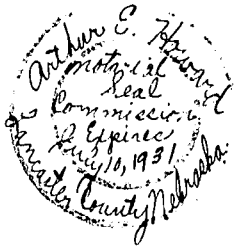 Arthur E. Howard
Notarial
Seal
Commission
Expires
July 10, 1931
Lancaster County Nebraska